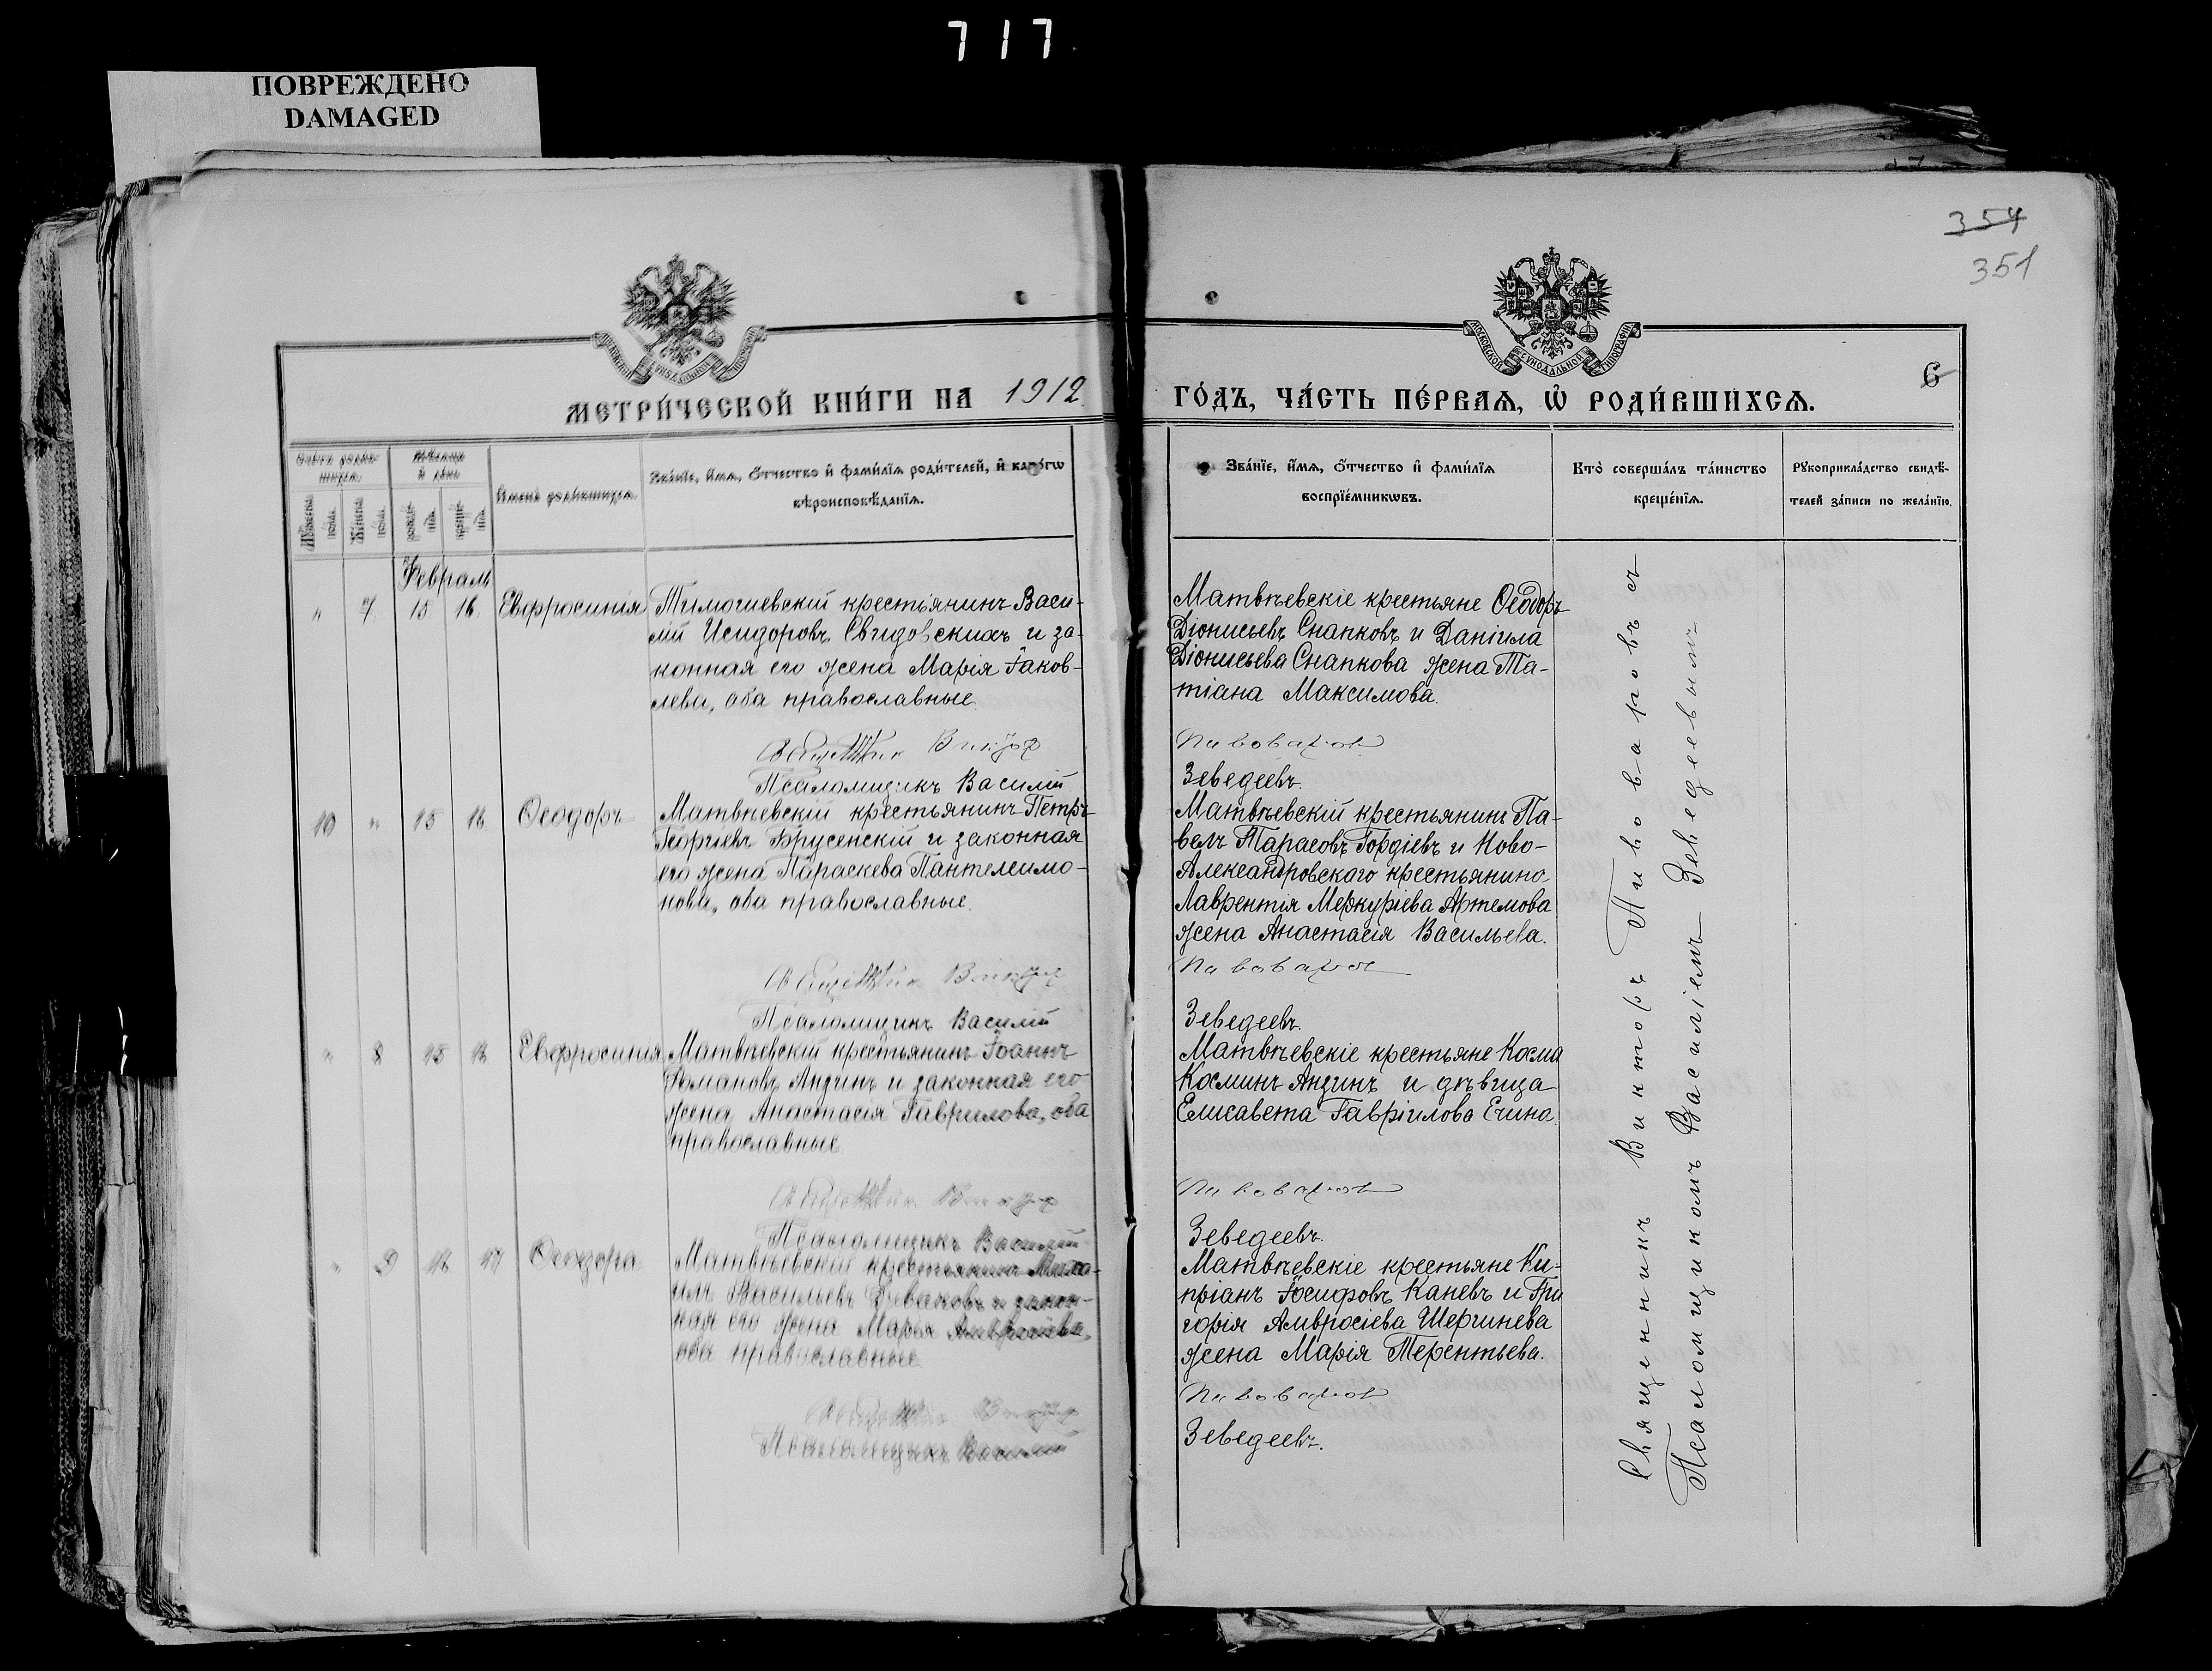 717
ПОВРЕЖДЕНО
DAMAGED
354
351
6
МЕТРИ́ЧЕСКОЙ КНИ́ГИ НА 1912
ГО́ДЪ, ЧА́СТЬ ПЕ́РВАѦ, Ѽ РОДИ́ВШИХСѦ.
МОСКОВСКОЙ СѴНОДАЛЬНОЙ ТИПОГРАФІИ
Имена родившихся.
Зва́нїе, и́мѧ, о́тчество и фами́лїѧ роди́телей, и како́гѡ
вѣроисповѣ́данїѧ.
Зва́нїе, и́мѧ, о́тчество и фами́лїѧ
воспрїе́мникѡвъ.
Кто̀ соверша́лъ та́инство
креще́нїѧ.
Рꙋкоприкла́дство свидѣ́-
телей за́писи по жела́нїю.
Февраль
" 7 15 16 Евфросинія
Тимошевскій крестьянинъ Васи-
лій Исидоровъ Свидовскихъ и за-
конная его жена Марія Іаков-
лева, оба православные.
Виктор
Псаломщикъ Василій
Матвѣевскіе крестьяне Ѳеодоръ
Діонисьевъ Снапковъ и Даніила
Діонисьева Снапкова жена Та-
тіана Максимова.
Пивоваров
Зеведеевъ.
10 " 15 16 Ѳеодоръ
Матвѣевскій крестьянинъ Петръ
Георгіевъ Брусенскій и законная
его жена Параскева Пантелеимо-
нова, оба православные.
Виктор
Псаломщикъ Василій
Матвѣевскій крестьянинъ Па-
велъ Тарасовъ Гордіевъ и Ново-
Александровскаго крестьянина
Лаврентія Меркуріева Артемова
жена Анастасія Васильева.
Пивоваров
Зеведеевъ.
" 8 15 16 Евфросинія
Матвѣевскій крестьянинъ Іоаннъ
Романовъ Андинъ и законная его
жена Анастасія Гаврилова, оба
православные
Виктор
Псаломщикъ Василій
Матвѣевскіе крестьяне Косма
Косминъ Андинъ и дѣвица
Елисавета Гавріилова Ечина.
Пивоваров
Зеведеевъ.
" 9 16 17 Ѳеодора
Матвѣевскій крестьянинъ Миха-
илъ Васильевъ и закон-
ная его жена Марія Амвросіева,
оба православные
Виктор
Псаломщикъ Василій
Матвѣевскіе крестьяне Ки-
пріанъ Іосифовъ Каневъ и Гри
горія Амвросіева Шергинева
жена Марія Терентьева.
Пивоваров
Зеведеевъ.
Священникъ Викторъ Пивоваровъ съ
Псаломщикомъ Василіемъ Зеведеевымъ